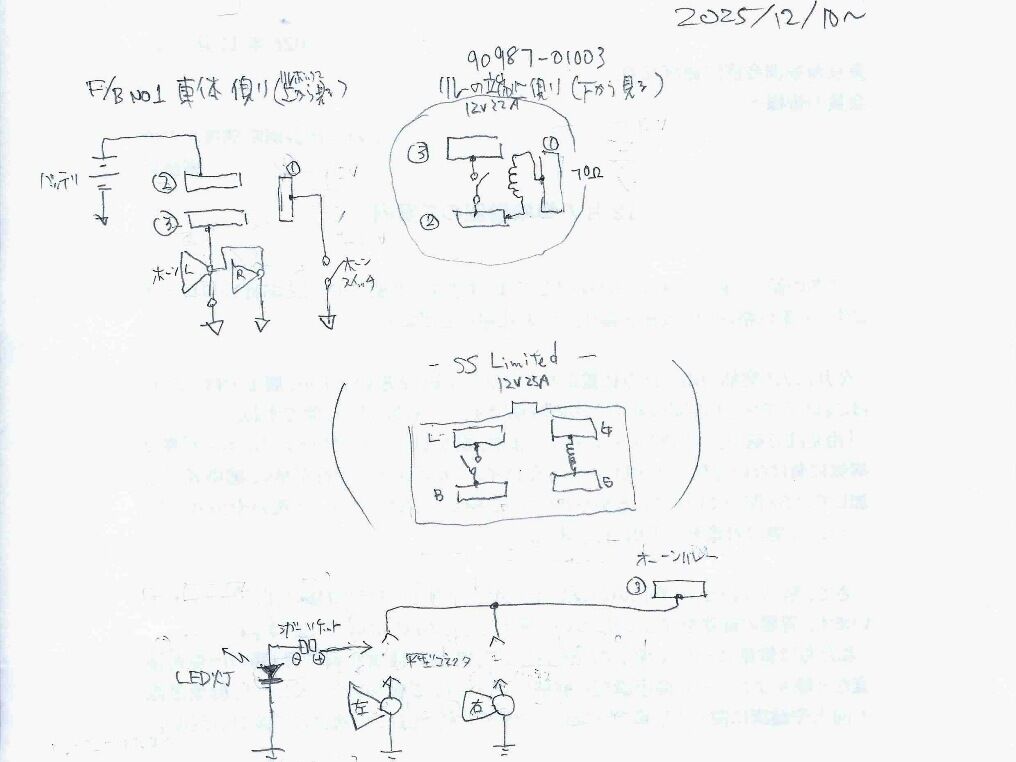 2025/12/10~
90987-01003
F/B NO1 車体側り(リレーボックス上から見る)
リレーの 側り (下から見る)
12V22A
バッテリ
②
③
①
ホーン
L
R
ホーン
スイッチ
③
②
①
70Ω
- SS Limited -
12V25A
L
B
ホーンリレー
③
シガーソケット
⊖ ⊕
LED灯
平型コネクタ
左
右